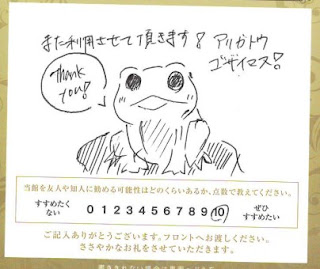 また利用させて頂きます! アリガトウ
ゴザイマス!
Thank
you!
当館を友人や知人に勧める可能性はどのくらいあるか、点数で教えてください。
すすめたく
ない
0 1 2 3 4 5 6 7 8 9 10
ぜひ
すすめたい
ご記入ありがとうございます。フロントへお渡しください。
ささやかなお礼をさせていただきます。